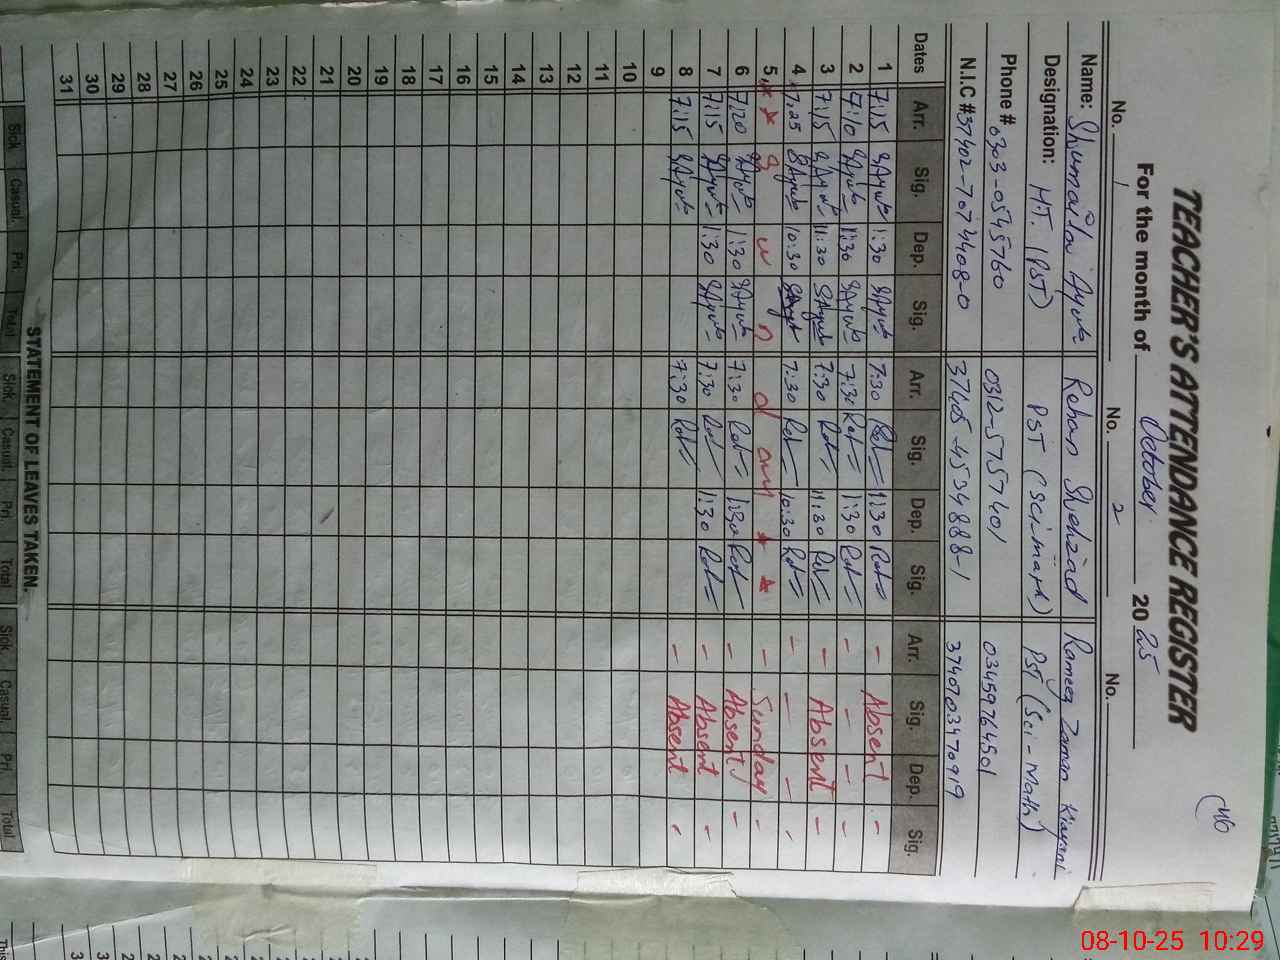 (46
TEACHER'S ATTENDANCE REGISTER
For the month of October 2025
No. 1 No. 2 No.
Name: Shumaila Ayub Rehan Shehzad Rameez Zaman Kiayani
Designation: HT. (PST) PST (Sci-math) PST (Sci-Math)
Phone # 0303-0545760 0312-5757401 03459764501
N.I.C # 37402-7074408-0 37405-4534888-1 3740703470919
Dates Arr. Sig. Dep. Sig. Arr. Sig. Dep. Sig. Arr. Sig. Dep. Sig.
1 7:15 SAyub 1:30 SAyub 7:30 1:30 - Absent -
2 7:10 SAyub 1:30 SAyub 7:30 1:30 - - - -
3 7:15 SAyub 11:30 SAyub 7:30 11:30 - Absent -
4 7:25 SAyub 10:30 SAyub 7:30 10:30 - - - -
5 * * S u n d ay * * - Sunday -
6 7:20 SAyub 1:30 SAyub 7:30 1:30 - Absent -
7 7:15 SAyub 1:30 SAyub 7:30 1:30 - Absent -
8 7:15 SAyub 7:30 - Absent -
9
10
11
12
13
14
15
16
17
18
19
20
21
22
23
24
25
26
27
28
29
30
31
STATEMENT OF LEAVES TAKEN.
Sick Casual. Pri. Total Sick. Casual. Pri. Total Sick. Casual. Pri. Total
08-10-25 10:29